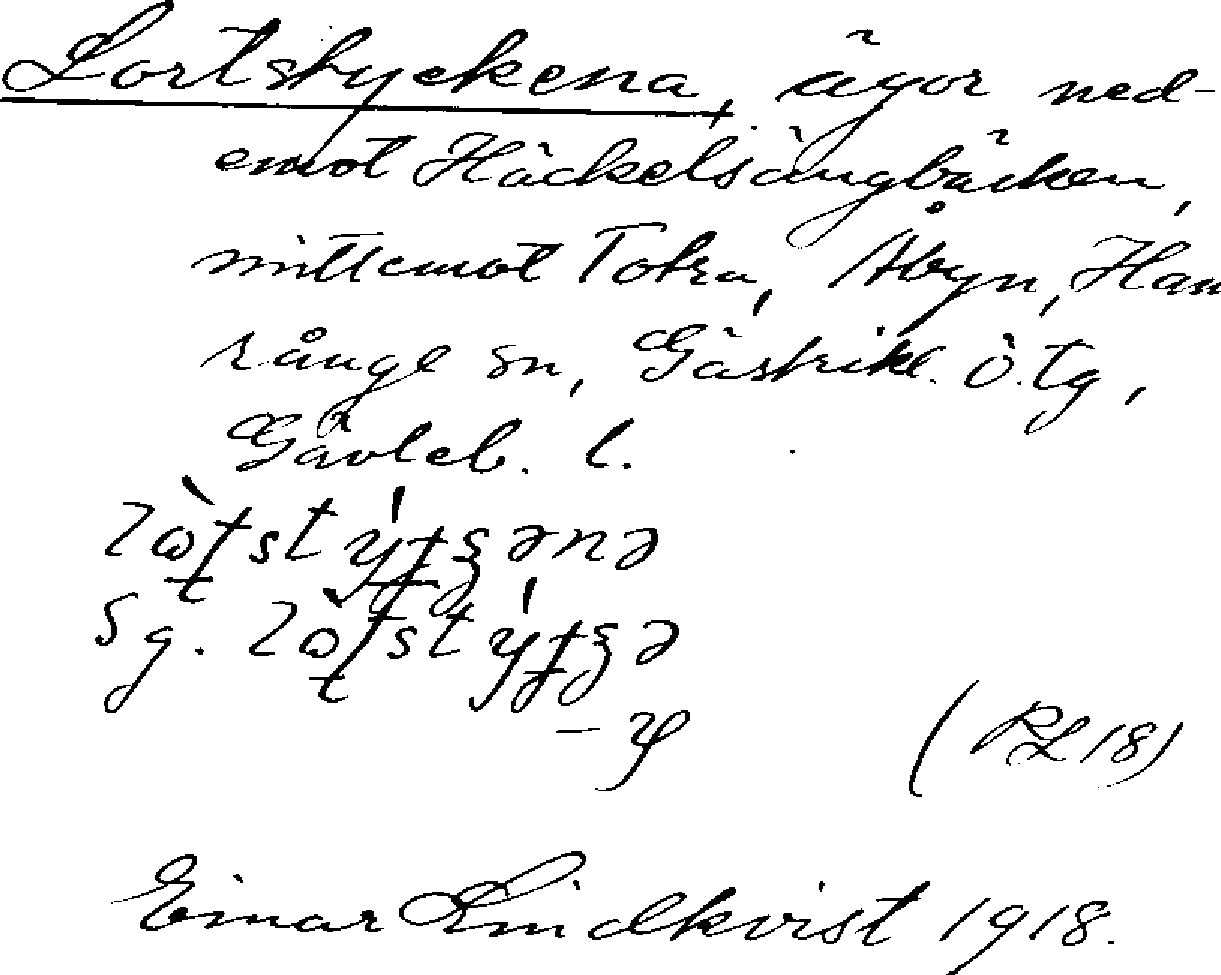 Lortstyckena, ägor ned-
emot Häckelsängbäcken,
mittemot Totra, Åbyn, Ham
rånge sn, Gästrikl. ö. tg,
Gävleb. l.
Sg.
(RL 18)
Einar Lindkvist 1918.